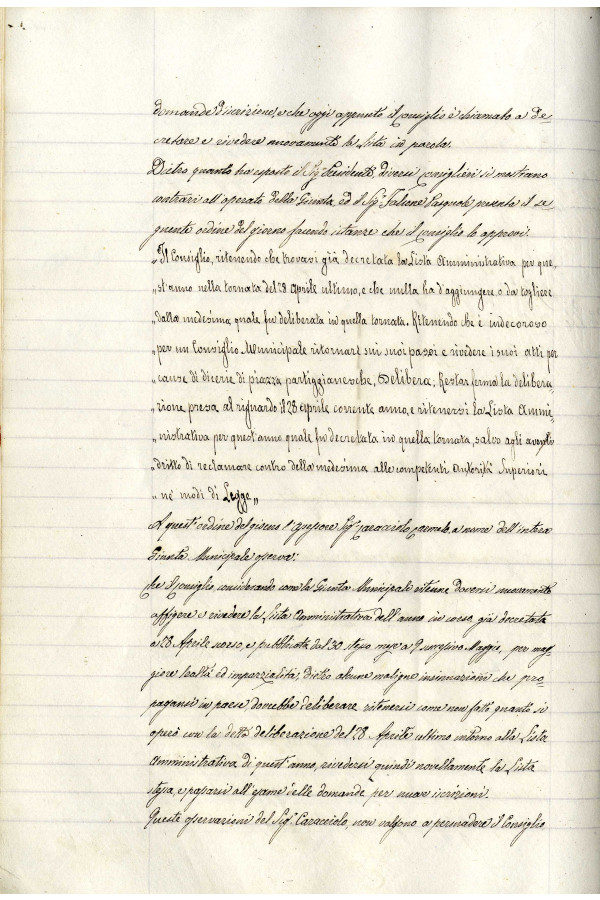 domande d'iscrizione, e che oggi appunto il Consiglio è chiamato a de-
cretare e rivedere nuovamente la Lista in parola.
Dietro quanto ha esposto il Sig. Presidente, diversi consiglieri si mostrano
contrari all'operato della Giunta, ed il Sig. Falcone Pasquale presenta il se-
guente ordine del giorno facendo istanze che il consiglio lo approvi.
"Il Consiglio, ritenendo che trovasi già decretata la Lista Amministrativa per que-
"st'anno nella tornata del 28 Aprile ultimo, e che nulla ha d'aggiungere o da togliere
"dalla medesima quale fu deliberata in quella tornata. Ritenendo che è indecoroso
"per un Consiglio Municipale ritornare sui suoi passi e rivedere i suoi atti per
"cause di dicerie di piazza partiggianesche, Delibera, Restar ferma la delibera-
"zione presa al riguardo il 28 Aprile corrente anno, e ritenersi la Lista Ammi-
"nistrativa per quest'anno quale fu decretata in quella tornata, salvo agli aventi
"dritto di reclamare contro della medesima alle competenti Autorità Superiori
"ne' modi di Legge"
A quest'ordine del giorno l'Assessore Sig. Caracciolo Carmelo, a nome dell'intera
Giunta Municipale osserva:
Che il consiglio, considerando come la Giunta Municipale ritenne doversi nuovamente
affigere e rivedere la Lista Amministrativa dell'anno in corso, già decretata
a 28 Aprile scorso, e pubblicata dal 30 stesso mese a 7 successivo Maggio, per mag-
giore lealtà ed imparzialità, dietro alcune maligne insinuazioni che pro-
pagansi in paese dovrebbe deliberare ritenersi come non fatto quanto si
operò con la detta deliberazione del 28 Aprile ultimo intorno alla Lista
Amministrativa di quest'anno, rivedersi quindi novellamente la Lista
stessa, e passarsi all'esame delle domande per nuove iscrizioni.
Queste osservazioni del Sig. Caracciolo, non valgono a persuadere il Consiglio